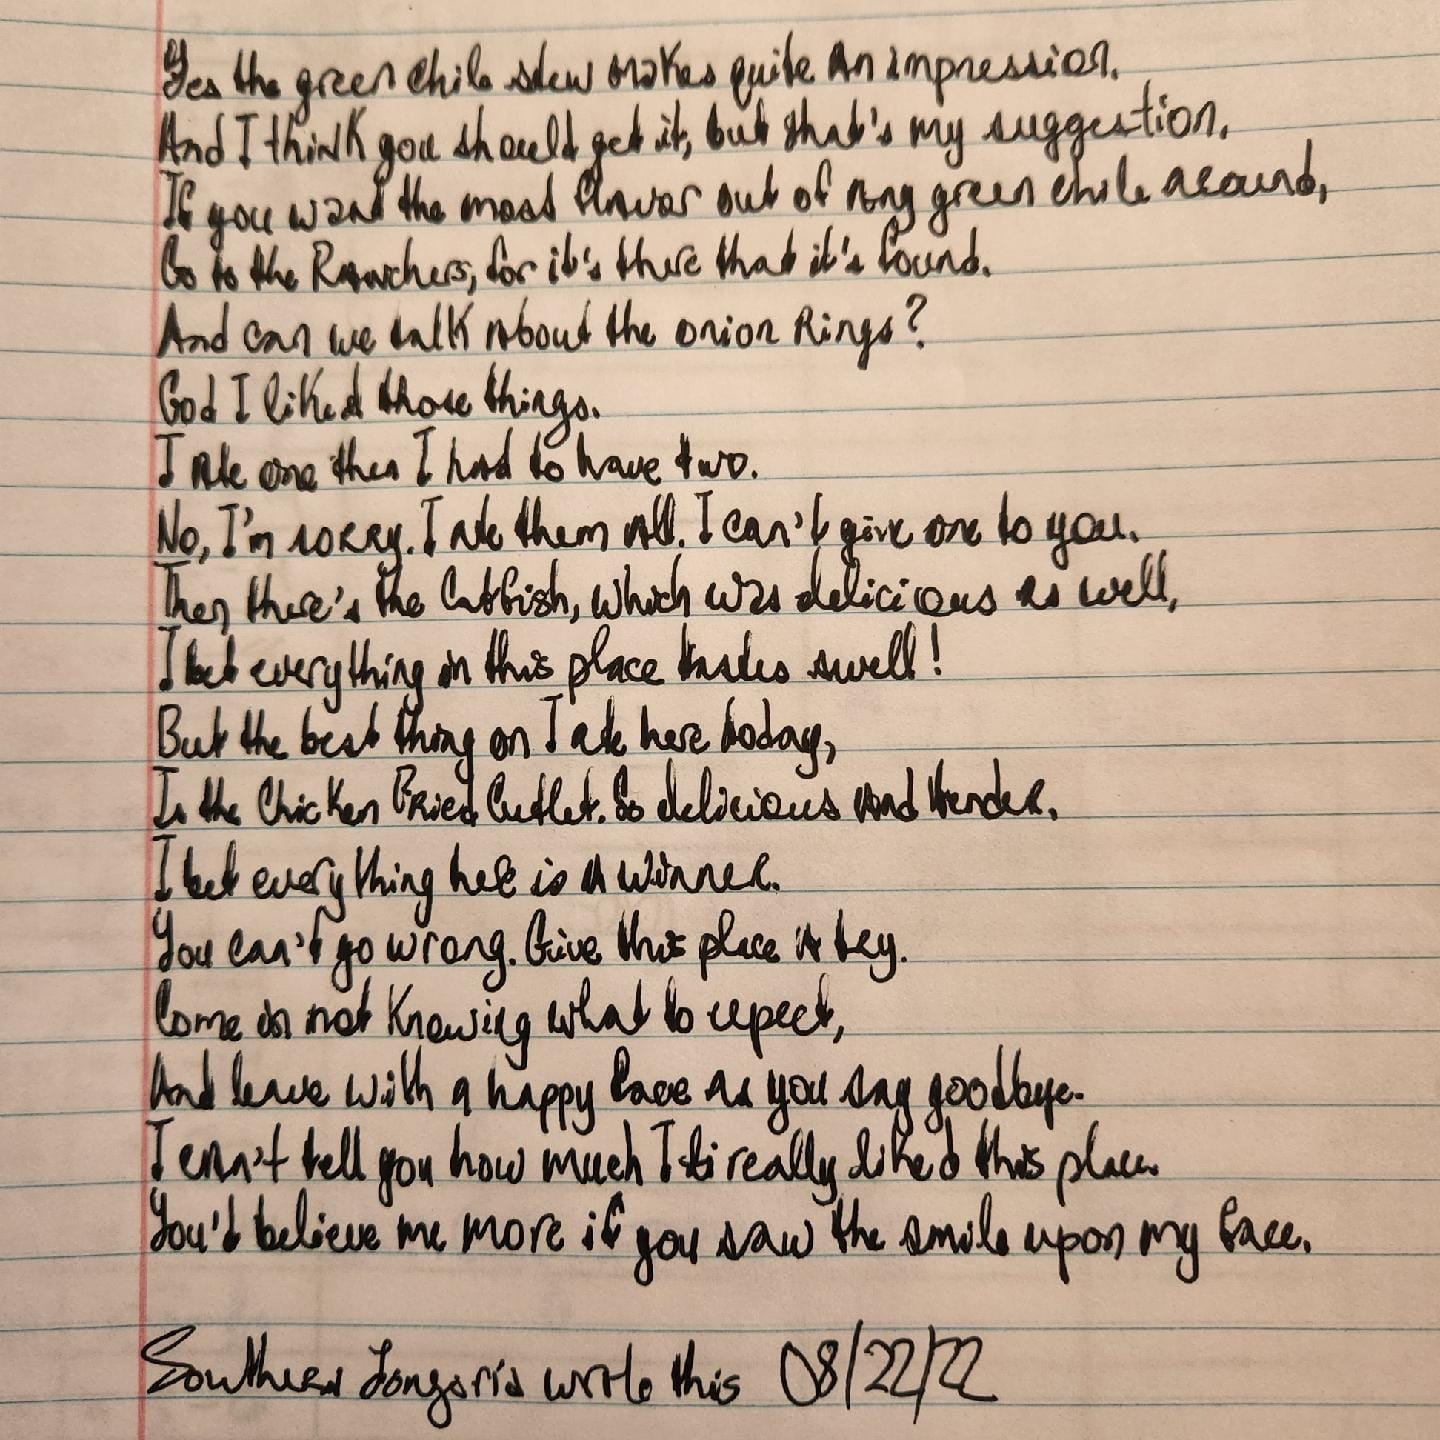 Yes the green chile stew makes quite an impression.
And I think you should get it, but that's my suggestion.
If you want the most flavor out of any green chile around,
Go to the Ranchers, for it's there that it's found.
And can we talk about the onion Rings?
God I liked those things.
I ate one then I had to have two.
No, I'm sorry. I ate them all. I can't give one to you.
Then there's the Catfish, which was delicious as well,
I bet everything in this place tastes swell!
But the best thing on I ate here today,
Is the Chicken Fried Cutlet. So delicious and tender.
I bet everything here is a winner.
You can't go wrong. Give this place a try.
Come in not knowing what to expect,
And leave with a happy face as you say goodbye.
I can't tell you how much I really liked this place.
You'd believe me more if you saw the smile upon my face.
Southern Longoria wrote this 08/22/22